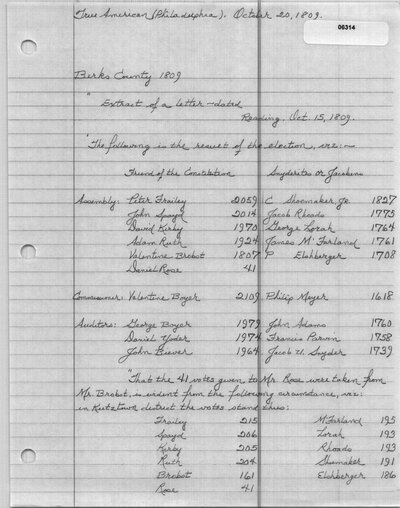 True American (Philadelphia). October 20, 1809.
06314
Berks County 1809
"Extract of a letter dated
Reading, Oct. 15, 1809.
"The following is the result of the election, viz:—
Friend of the Constitution Snyderites or Jacobins
Assembly: Peter Frailey 2059 C Shoemaker Jr. 1827
John Spayd 2014 Jacob Rhoads 1775
David Kirby 1970 George Zorah 1764
Adam Ruth 1924 James McFarland 1761
Valentine Brobst 1807 P Elshberger 1708
Daniel Rose 41
Commissioner: Valentine Boyer 2109 Philip Moyer 1618
Auditors: George Boyer 1979 John Adams 1760
Daniel Yoder 1974 Francis Parvin 1758
John Biever 1964 Jacob U. Snyder 1739
"That the 41 votes given to Mr. Rose were taken from
Mr. Brobst, is evident from the following circumstance, viz:
in Kutztown district the votes stand thus:
Frailey 215 McFarland 195
Spayd 206 Zorah 193
Kirby 205 Rhoads 193
Ruth 204 Shumaker 191
Brobst 161 Elshberger 186
Rose 41